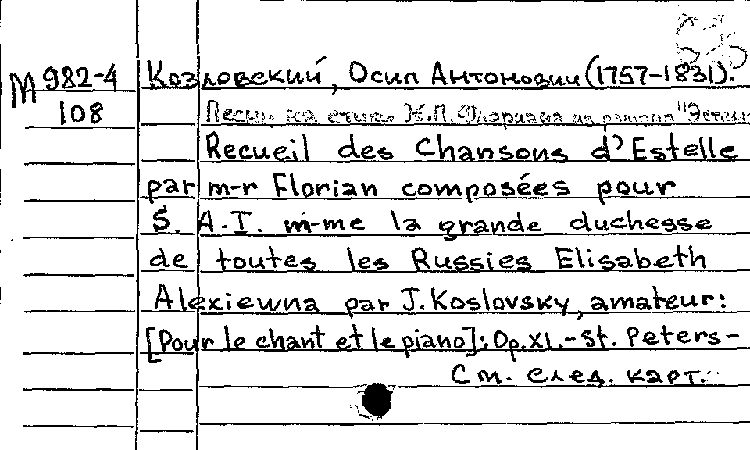 М 982-4
108
Козловский, Осип Антонович (1757-1831).
Песни на стихи Ж.П. Флориана из романа "Эстел
Recueil des Chansons d'Estelle
par m-r Florian composées pour
S. A. I. m-me la grande duchesse
de toutes les Russies Elisabeth
Alexiewna par J. Koslovsky, amateur:
[Pour le chant et le piano]: Op. XI. - St. Peters-
См. след. карт.